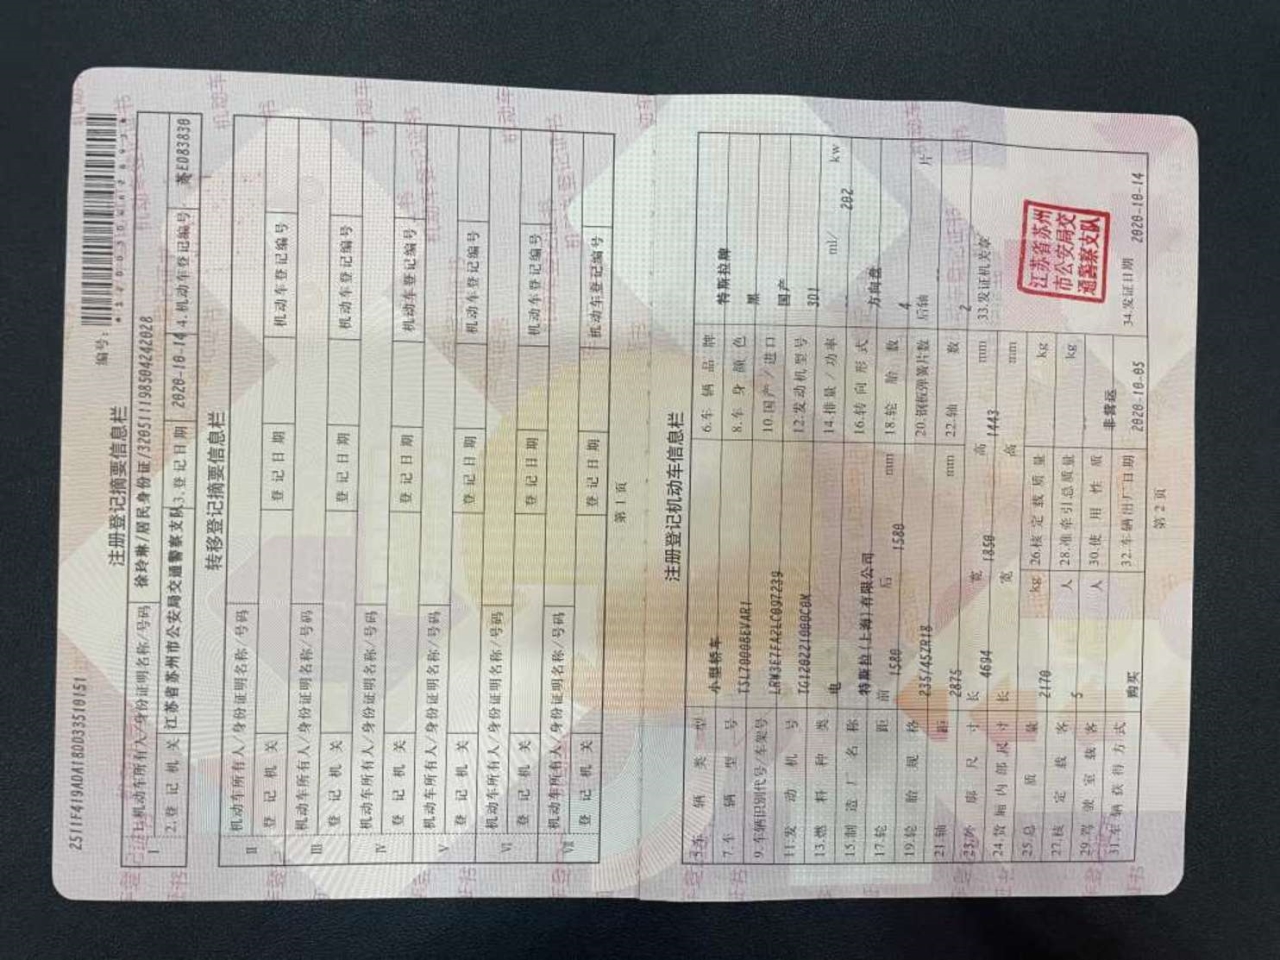 2511F419ADA18DD33510151
编号:
注册登记摘要信息栏
I 1.机动车所有人/身份证明名称/号码 徐玲琳/居民身份证/320511198504242028
2.登记机关 江苏省苏州市公安局交通警察支队 3.登记日期 2020-10-14 4.机动车登记编号 苏ED83830
转移登记摘要信息栏
II 机动车所有人/身份证明名称/号码
登记机关 登记日期 机动车登记编号
III 机动车所有人/身份证明名称/号码
登记机关 登记日期 机动车登记编号
IV 机动车所有人/身份证明名称/号码
登记机关 登记日期 机动车登记编号
V 机动车所有人/身份证明名称/号码
登记机关 登记日期 机动车登记编号
VI 机动车所有人/身份证明名称/号码
登记机关 登记日期 机动车登记编号
VII 机动车所有人/身份证明名称/号码
登记机关 登记日期 机动车登记编号
第 1 页
注册登记机动车信息栏
5.车辆类型 小型轿车 6.车辆品牌 特斯拉牌
7.车辆型号 TSL7000BEVAR1 8.车身颜色 黑
9.车辆识别代号/车架号 LRW3E7FA2LC097239 10.国产/进口 国产
11.发动机号 TG120221000C0X 12.发动机型号 3D1
13.燃料种类 电 14.排量/功率 ml/ 202 kw
15.制造厂名称 特斯拉(上海)有限公司 16.转向形式 方向盘
17.轮距 前 1580 后 1580 mm 18.轮胎数 4
19.轮胎规格 235/45ZR18 20.钢板弹簧片数 后轴 片
21.轴距 2875 mm 22.轴数 2
23.外廓尺寸 长 4694 宽 1850 高 1443 mm 33.发证机关章
24.货厢内部尺寸 长 宽 高 mm
25.总质量 2170 kg 26.核定载质量 kg
27.核定载客 5 人 28.准牵引总质量 kg
29.驾驶室载客 人 30.使用性质 非营运
31.车辆获得方式 购买 32.车辆出厂日期 2020-10-05 34.发证日期 2020-10-14
江苏省苏州
市公安局交
通警察支队
第 2 页